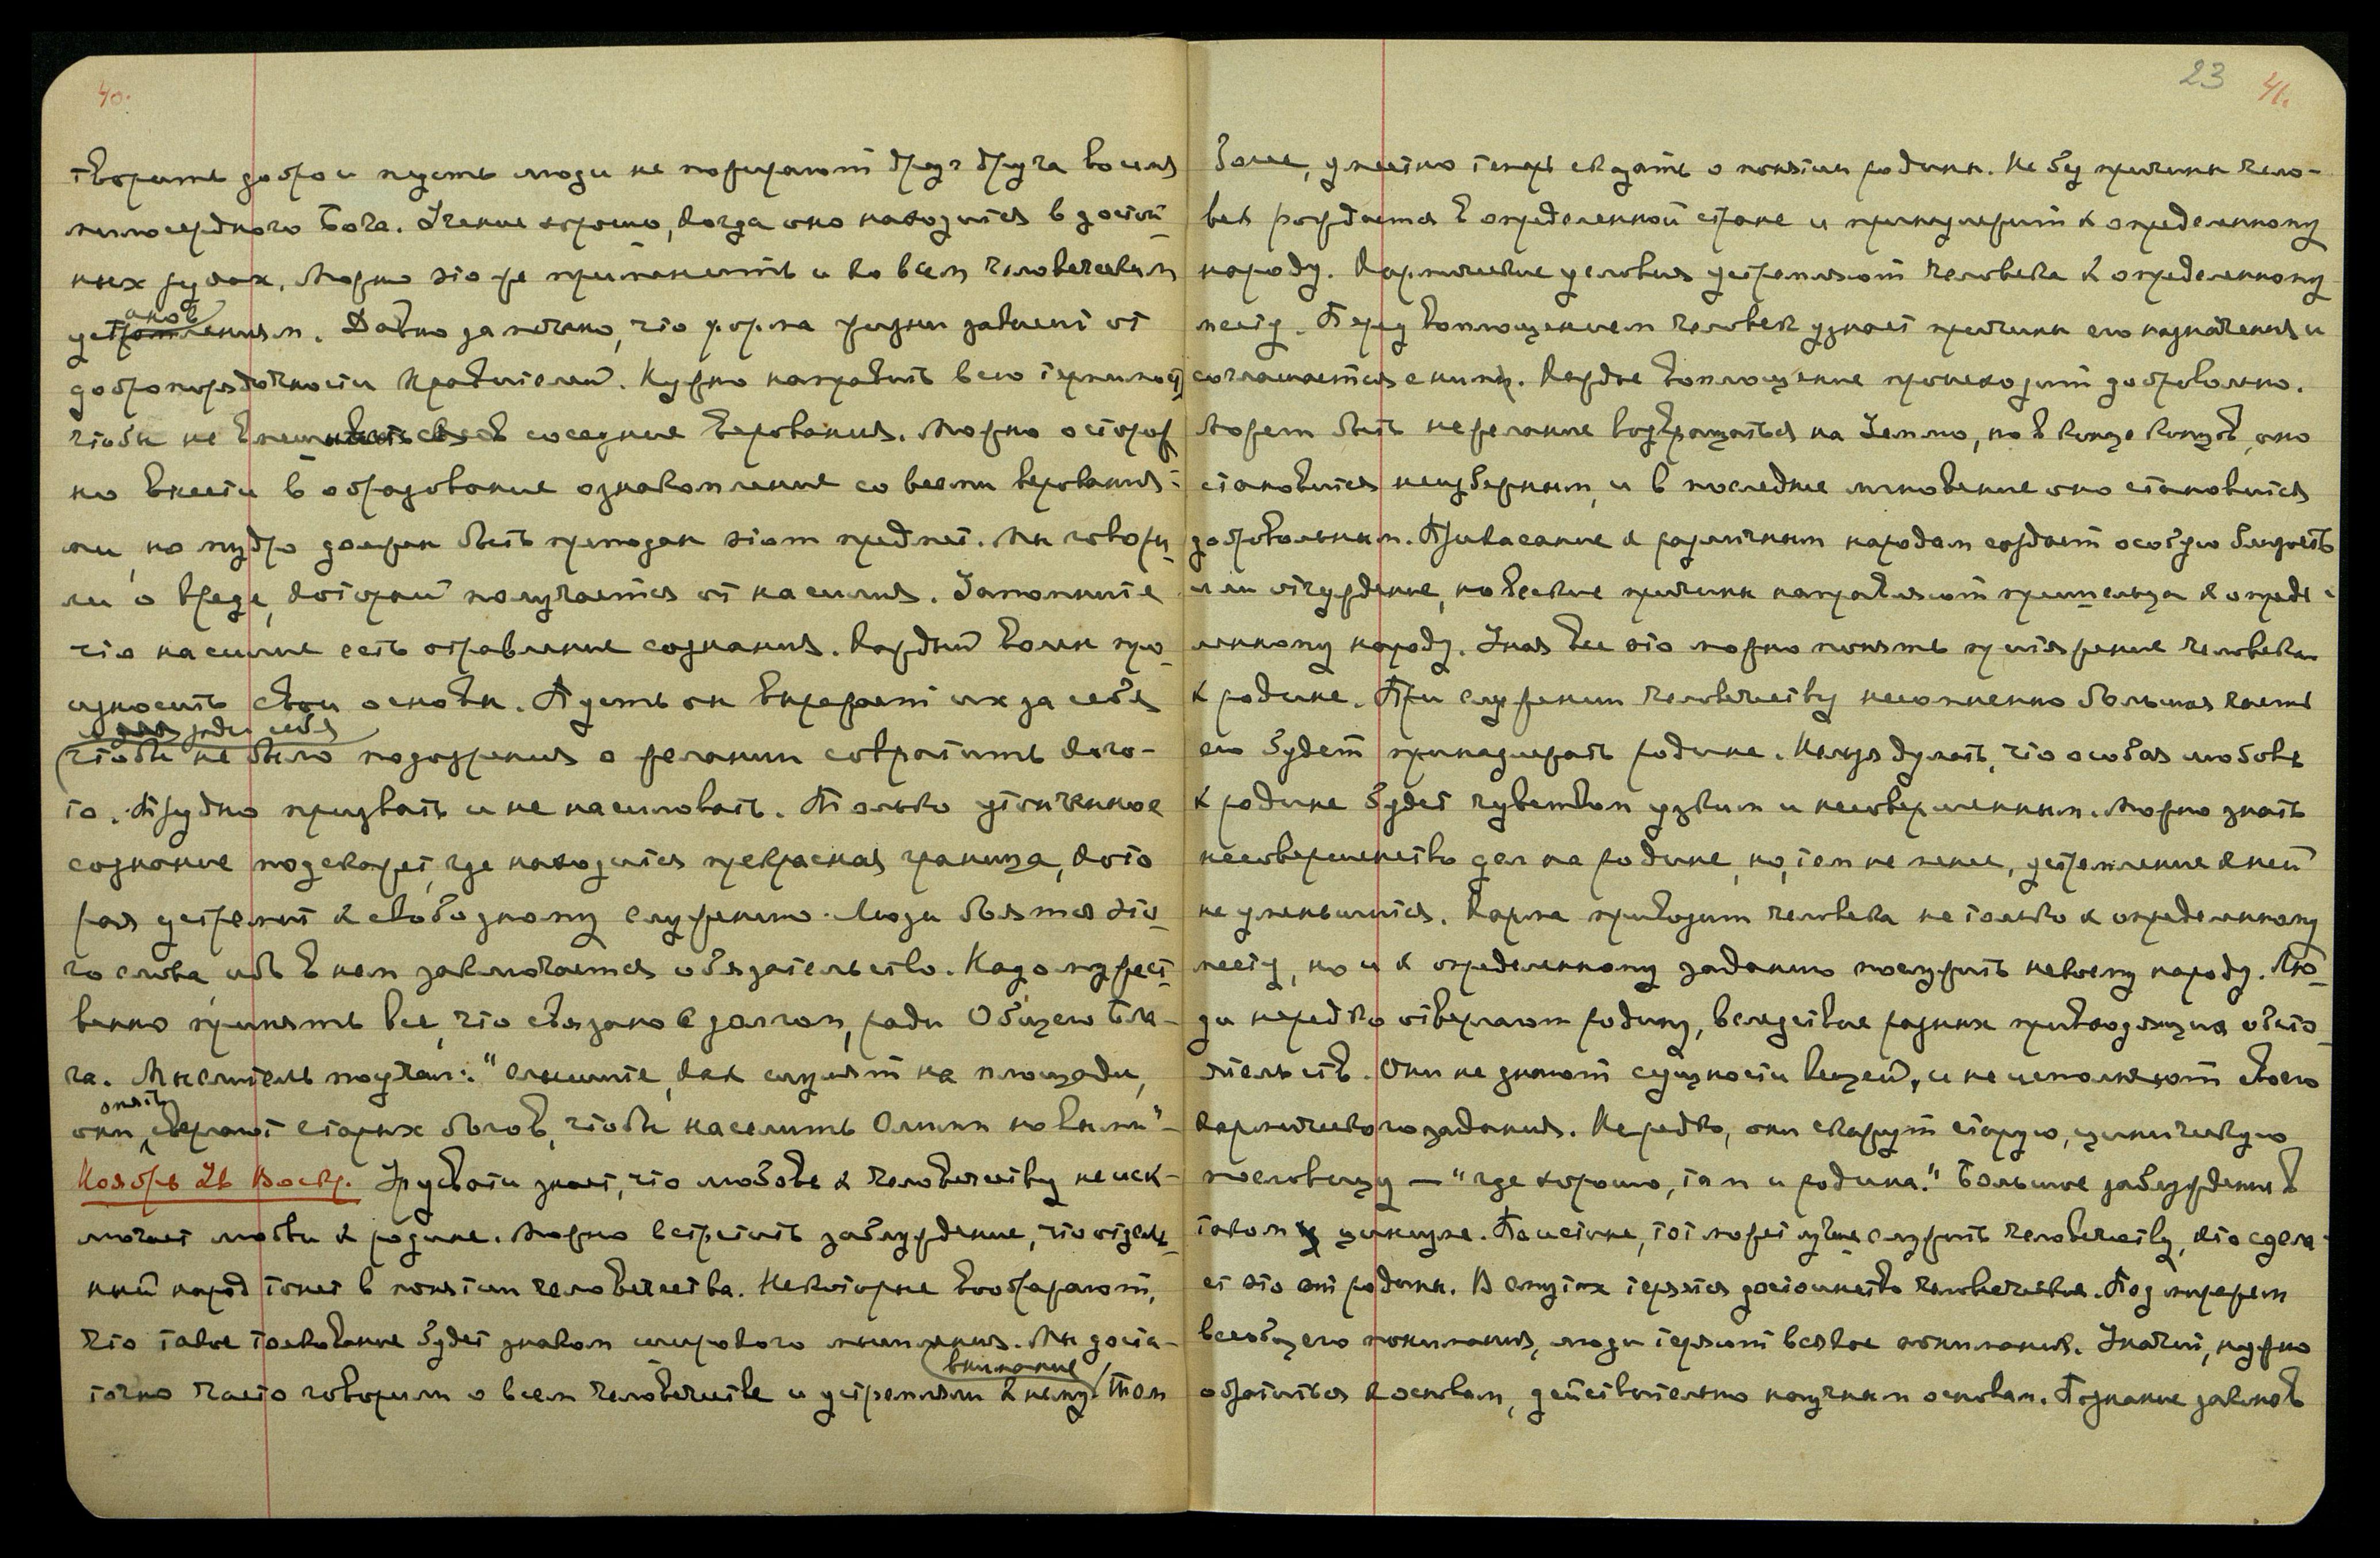 40.
творить добро и пусть люди не пожирают друг друга во имя
милосердного Бога. Учение хорошо, когда оно находится в достой-
ных руках. Можно это же применить и ко всем человеческим
установлениям. Давно замечено, что форма жизни зависит от
добропорядочности правителей. Нужно направить всю терпимость
чтобы не вмешиваться в соседние верования. Можно осторож
но внести в образование ознакомление со всеми верования-
ми, но мудро должен быть преподан этот предмет. Мы говори-
ли о вреде, который получается от насилия. Запомните
что насилие есть отравление сознания. Каждый волен про-
износить свои основы. Пусть он выражает их за себя
и ради себя
чтобы не было подозрения о желании совратить кого-
то. Трудно призвать и не насиловать. Только утонченное
сознание подскажет, где находится прекрасная граница, кото
рая устремит к свободному служению. Люди боятся это-
го слова ибо в нем заключается обязательство. Надо мужест-
венно принять все, что связано с долгом, ради Общего Бла-
га. Мыслитель поучал: "слышите, как шумят на площади,
опять
они свергают старых богов, чтобы населить Олимп новыми"-
Ноябрь 26 Воскр. Урусвати знает, что любовь к человечеству не иск-
лючает любви к родине. Можно встретить заблуждение, что отдель-
ный народ тонет в понятии человечества. Некоторые воображают,
что такое толкование будет знаком широкого мышления. Мы доста-
внимание
точно часто говорили о всем человечестве и устремляли к нему. Тем
23 41.
более, уместно теперь сказать о понятии родины. Не без причины чело-
век рождается в определенной стране и принадлежит к определенному
народу. Кармические условия устремляют человека к определенному
месту. Перед воплощением человек узнает причины его назначения и
соглашается с ними. Каждое воплощение происходит добровольно.
Может быть нежелание возвращаться на Землю, но в конце концов, оно
становится неизбежным, и в последнее мгновение оно становится
добровольным. Прикасание к различным народам создает особую близость
или отчуждение, но веские причины направляют пришельца к опреде-
ленному народу. Зная все это можно понять притяжение человека
к родине. При служении человечеству несомненно большая часть
его будет принадлежать родине. Нельзя думать, что особая любовь
к родине будет чувством узким и несовершенным. Можно знать
несовершенство дел на родине, но, тем не менее, устремление к ней
не уменьшится. Карма приводит человека не только к определенному
месту, но и к определенному заданию послужить невоему народу. Лю-
ди нередко отвергают родину, вследствие разных привходящих обсто-
ятельств. Они не знают сущности вещей, и не исполняют своего
кармического задания. Нередко, они скажут старую, циническую
пословицу — "где хорошо, там и родина." Большое заблуждение в
таком цинизме. Поистине, тот может лучше служить человечеству, кто сдела-
ет это от родины. В смутах теряется достоинство человеческое. Под миражем
всеобщего понимания, люди теряют всякое понимание. Значит, нужно
обратиться к основам, действительно научным основам. Познание законов